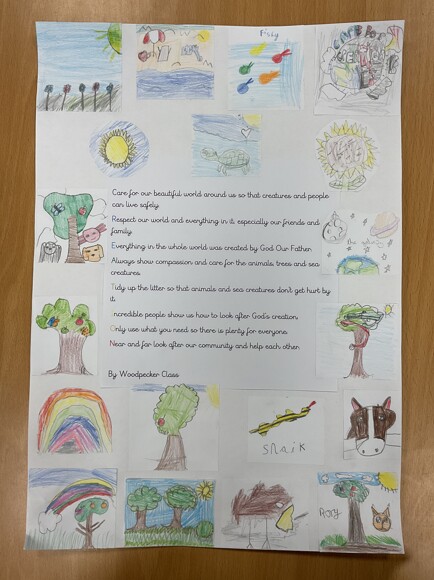 Fishy
Care for our beautiful world around us so that creatures and people
can live safely.
Respect our world and everything in it: especially our friends and
family.
Everything in the whole world was created by God Our Father.
Always show compassion and care for the animals, trees and sea
creatures.
Tidy up the litter so that animals and sea creatures don't get hurt by
it.
Incredible people show us how to look after God's creation.
Only use what you need so there is plenty for everyone.
Near and far look after our community and help each other.
By Woodpecker Class
Snaik
Rory